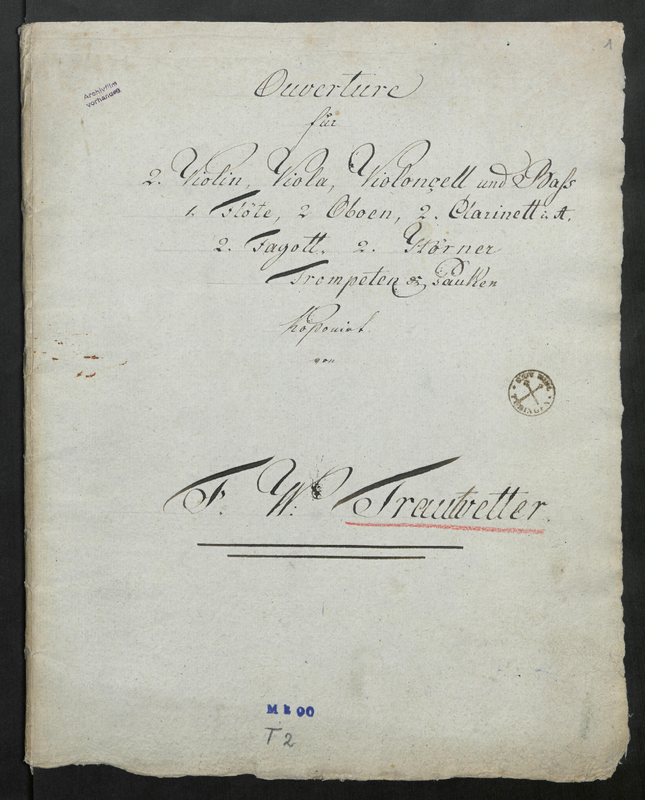 1
Archivfilm
vorhanden
Ouverture
für
2. Violin, Viola, Violoncell und Bass
1. Flöte, 2 Oboen, 2. Clarinett in A.
2. Fagott. 2. Hörner
Trompeten & Pauken
von
TÜBINGEN
F. W. Trautvetter
M k 90
T 2